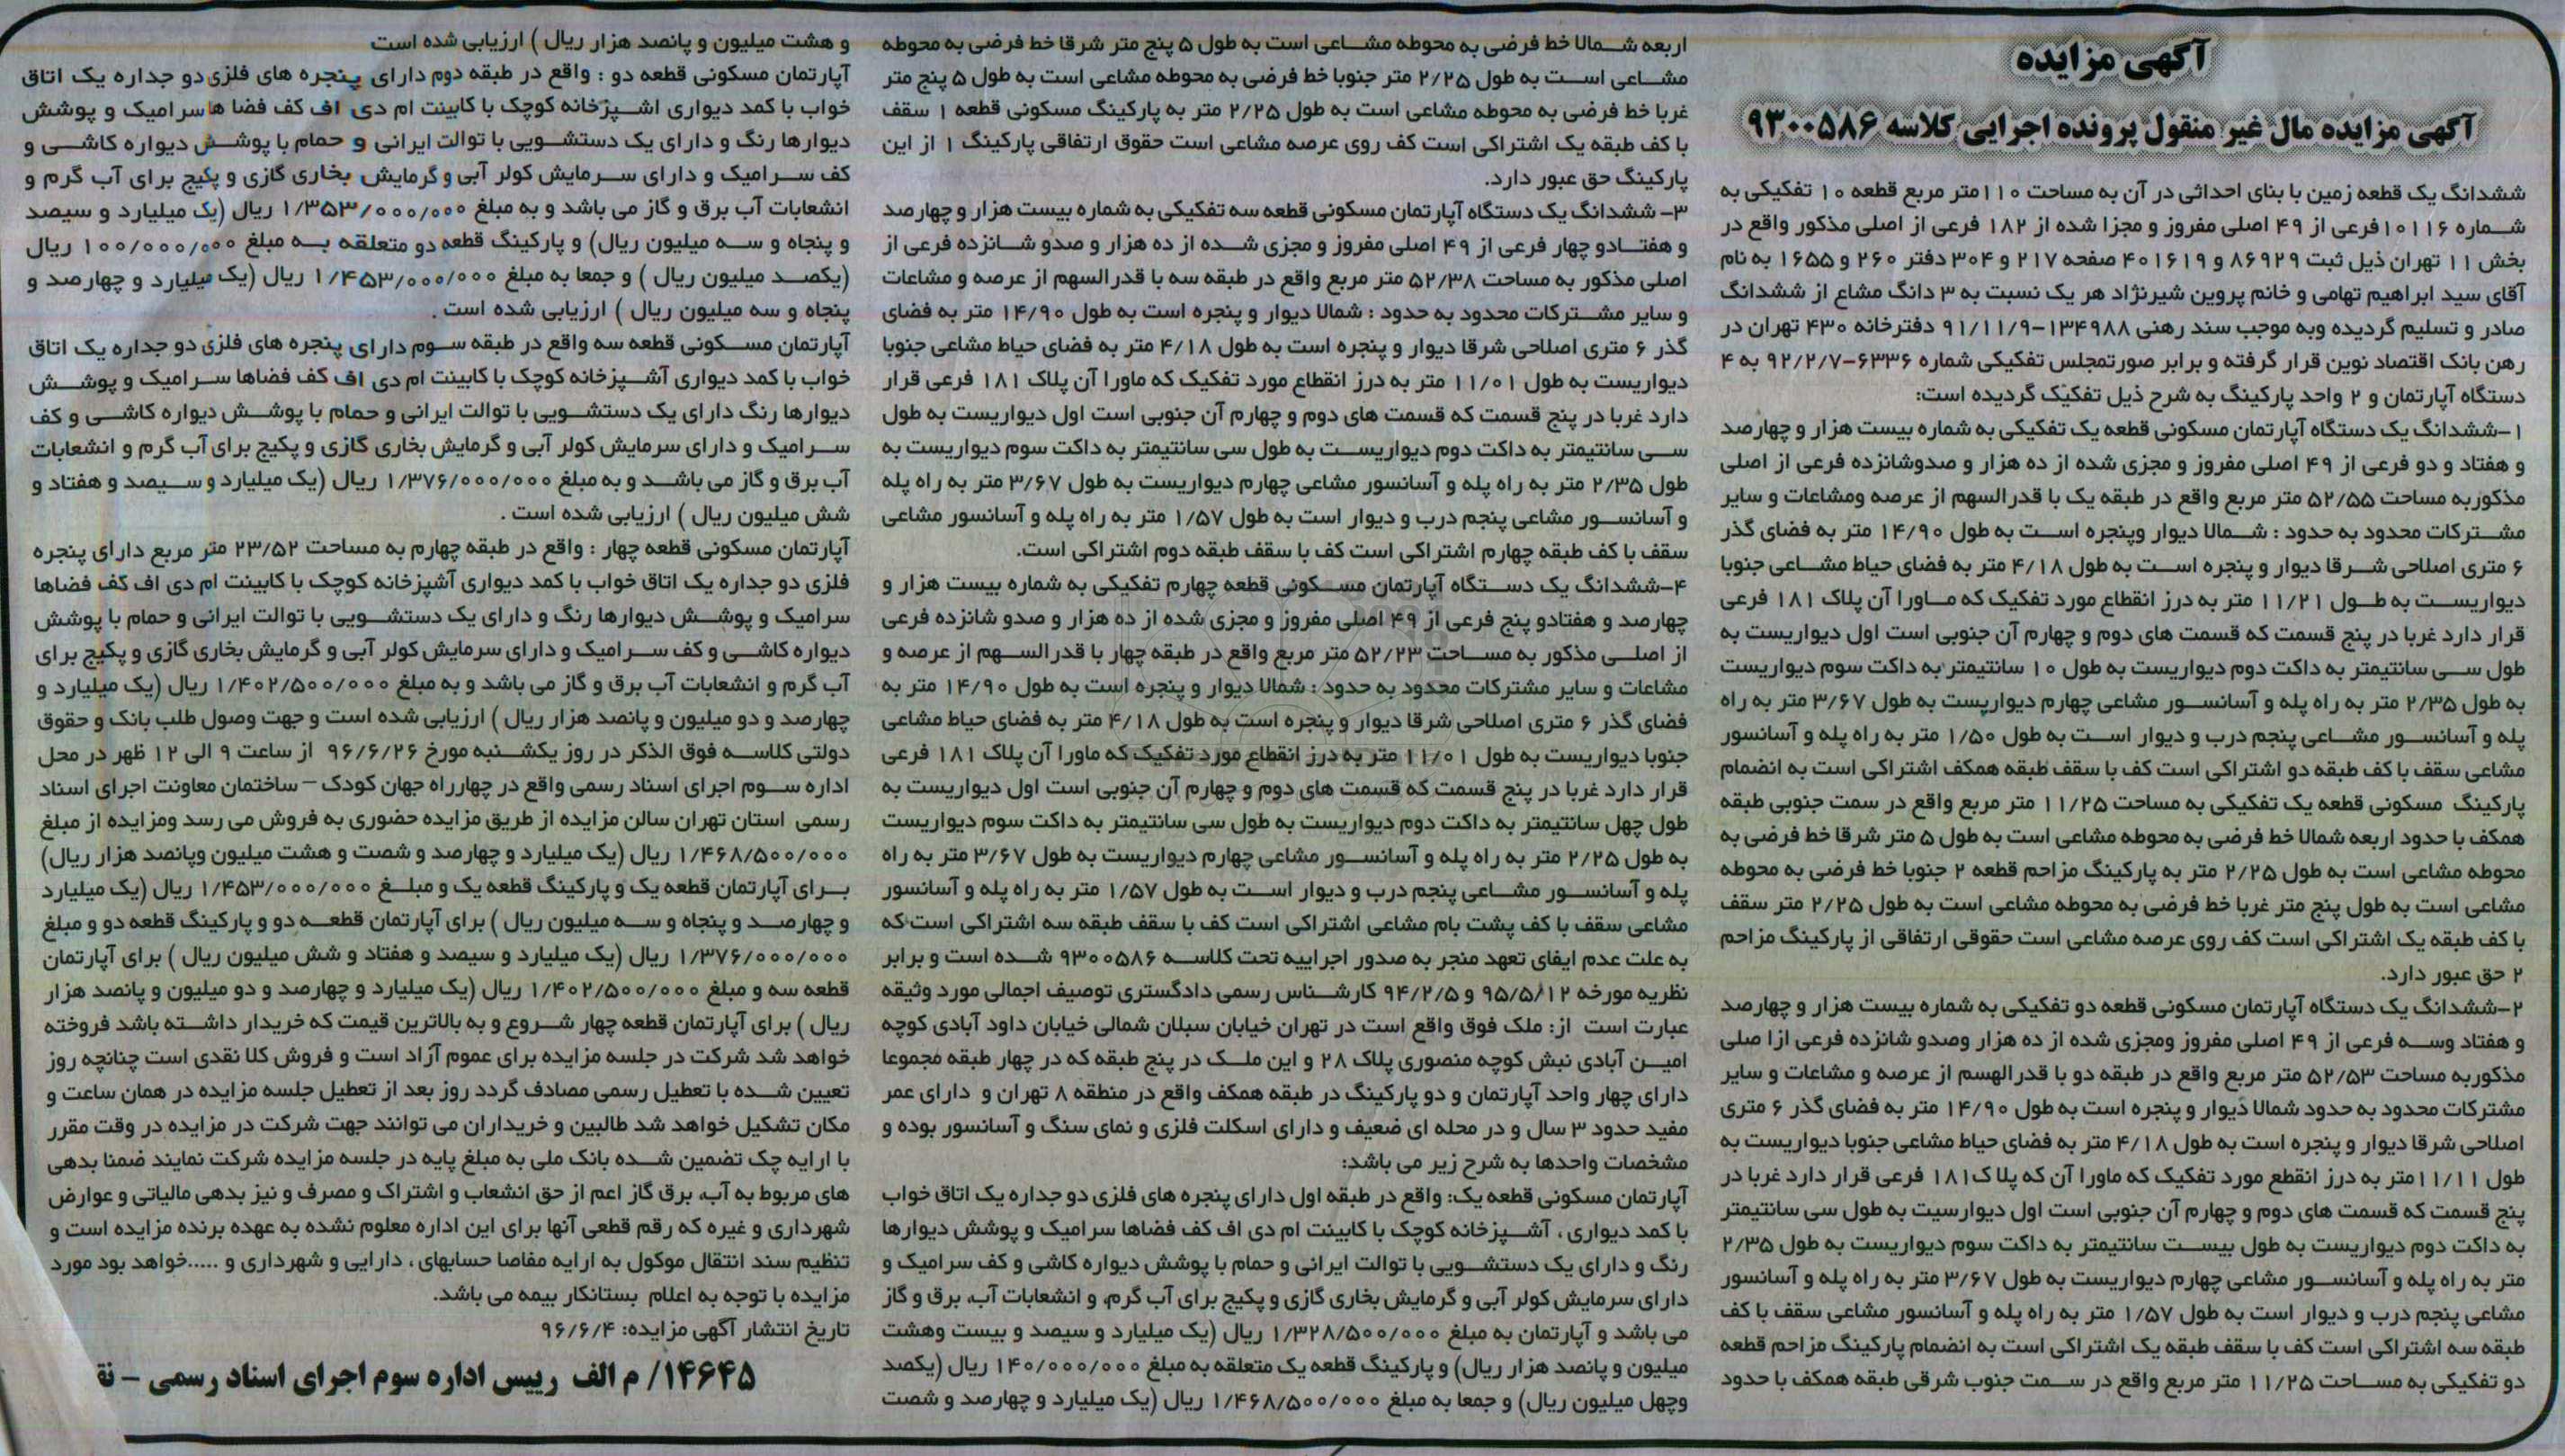 آگهی مزایده
آگهی مزایده مال غیر منقول پرونده اجرایی کلاسه ۹۳۰۰۵۸۶
ششدانگ یک قطعه زمین با بنای احداثی در آن به مساحت ۱۱۰متر مربع قطعه ۱۰ تفکیکی به
شماره ۱۰۱۱۶فرعی از ۴۹ اصلی مفروز و مجزا شده از ۱۸۲ فرعی از اصلی مذکور واقع در
بخش ۱۱ تهران ذیل ثبت ۸۶۹۲۹ و ۴۰۱۶۱۹ صفحه ۲۱۷ و ۳۰۴ دفتر ۲۶۰ و ۱۶۵۵ به نام
آقای سید ابراهیم تهامی و خانم پروین شیرنژاد هر یک نسبت به ۳ دانگ مشاع از ششدانگ
صادر و تسلیم گردیده وبه موجب سند رهنی ۱۳۴۹۸۸-۹۱/۱۱/۹ دفترخانه ۴۳۰ تهران در
رهن بانک اقتصاد نوین قرار گرفته و برابر صورتمجلس تفکیکی شماره ۶۳۳۶-۹۲/۲/۷ به ۴
دستگاه آپارتمان و ۲ واحد پارکینگ به شرح ذیل تفکیک گردیده است:
۱-ششدانگ یک دستگاه آپارتمان مسکونی قطعه یک تفکیکی به شماره بیست هزار و چهارصد
و هفتاد و دو فرعی از ۴۹ اصلی مفروز و مجزی شده از ده هزار و صدوشانزده فرعی از اصلی
مذکوربه مساحت ۵۲/۵۵ متر مربع واقع در طبقه یک با قدرالسهم از عرصه ومشاعات و سایر
مشترکات محدود به حدود : شمالا دیوار وپنجره است به طول ۱۴/۹۰ متر به فضای گذر
۶ متری اصلاحی شرقا دیوار و پنجره است به طول ۴/۱۸ متر به فضای حیاط مشاعی جنوبا
دیواریست به طول ۱۱/۲۱ متر به درز انقطاع مورد تفکیک که ماورا آن پلاک ۱۸۱ فرعی
قرار دارد غربا در پنج قسمت که قسمت های دوم و چهارم آن جنوبی است اول دیواریست به
طول سی سانتیمتر به داکت دوم دیواریست به طول ۱۰ سانتیمتر به داکت سوم دیواریست
به طول ۲/۳۵ متر به راه پله و آسانسور مشاعی چهارم دیواریست به طول ۳/۶۷ متر به راه
پله و آسانسور مشاعی پنجم درب و دیوار است به طول ۱/۵۰ متر به راه پله و آسانسور
مشاعی سقف با کف طبقه دو اشتراکی است کف با سقف طبقه همکف اشتراکی است به انضمام
پارکینگ مسکونی قطعه یک تفکیکی به مساحت ۱۱/۲۵ متر مربع واقع در سمت جنوبی طبقه
همکف با حدود اربعه شمالا خط فرضی به محوطه مشاعی است به طول ۵ متر شرقا خط فرضی به
محوطه مشاعی است به طول ۲/۲۵ متر به پارکینگ مزاحم قطعه ۲ جنوبا خط فرضی به محوطه
مشاعی است به طول پنج متر غربا خط فرضی به محوطه مشاعی است به طول ۲/۲۵ متر سقف
با کف طبقه یک اشتراکی است کف روی عرصه مشاعی است حقوقی ارتفاقی از پارکینگ مزاحم
۲ حق عبور دارد.
۲-ششدانگ یک دستگاه آپارتمان مسکونی قطعه دو تفکیکی به شماره بیست هزار و چهارصد
و هفتاد وسه فرعی از ۴۹ اصلی مفروز ومجزی شده از ده هزار وصدو شانزده فرعی ازا صلی
مذکوربه مساحت ۵۲/۵۳ متر مربع واقع در طبقه دو با قدرالهسم از عرصه و مشاعات و سایر
مشترکات محدود به حدود شمالا دیوار و پنجره است به طول ۱۴/۹۰ متر به فضای گذر ۶ متری
اصلاحی شرقا دیوار و پنجره است به طول ۴/۱۸ متر به فضای حیاط مشاعی جنوبا دیواریست به
طول ۱۱/۱۱متر به درز انقطع مورد تفکیک که ماورا آن که پلاک۱۸۱ فرعی قرار دارد غربا در
پنج قسمت که قسمت های دوم و چهارم آن جنوبی است اول دیوارسیت به طول سی سانتیمتر
به داکت دوم دیواریست به طول بیست سانتیمتر به داکت سوم دیواریست به طول ۲/۳۵
متر به راه پله و آسانسور مشاعی چهارم دیواریست به طول ۳/۶۷ متر به راه پله و آسانسور
مشاعی پنجم درب و دیوار است به طول ۱/۵۷ متر به راه پله و آسانسور مشاعی سقف با کف
طبقه سه اشتراکی است کف با سقف طبقه یک اشتراکی است به انضمام پارکینگ مزاحم قطعه
دو تفکیکی به مساحت ۱۱/۲۵ متر مربع واقع در سمت جنوب شرقی طبقه همکف با حدود
اربعه شمالا خط فرضی به محوطه مشاعی است به طول ۵ پنج متر شرقا خط فرضی به محوطه
مشاعی است به طول ۲/۲۵ متر جنوبا خط فرضی به محوطه مشاعی است به طول ۵ پنج متر
غربا خط فرضی به محوطه مشاعی است به طول ۲/۲۵ متر به پارکینگ مسکونی قطعه ۱ سقف
با کف طبقه یک اشتراکی است کف روی عرصه مشاعی است حقوق ارتفاقی پارکینگ ۱ از این
پارکینگ حق عبور دارد.
۳- ششدانگ یک دستگاه آپارتمان مسکونی قطعه سه تفکیکی به شماره بیست هزار و چهارصد
و هفتادو چهار فرعی از ۴۹ اصلی مفروز و مجزی شده از ده هزار و صدو شانزده فرعی از
اصلی مذکور به مساحت ۵۲/۳۸ متر مربع واقع در طبقه سه با قدرالسهم از عرصه و مشاعات
و سایر مشترکات محدود به حدود : شمالا دیوار و پنجره است به طول ۱۴/۹۰ متر به فضای
گذر ۶ متری اصلاحی شرقا دیوار و پنجره است به طول ۴/۱۸ متر به فضای حیاط مشاعی جنوبا
دیواریست به طول ۱۱/۰۱ متر به درز انقطاع مورد تفکیک که ماورا آن پلاک ۱۸۱ فرعی قرار
دارد غربا در پنج قسمت که قسمت های دوم و چهارم آن جنوبی است اول دیواریست به طول
سی سانتیمتر به داکت دوم دیواریست به طول سی سانتیمتر به داکت سوم دیواریست به
طول ۲/۳۵ متر به راه پله و آسانسور مشاعی چهارم دیواریست به طول ۳/۶۷ متر به راه پله
و آسانسور مشاعی پنجم درب و دیوار است به طول ۱/۵۷ متر به راه پله و آسانسور مشاعی
سقف با کف طبقه چهارم اشتراکی است کف با سقف طبقه دوم اشتراکی است.
۴-ششدانگ یک دستگاه آپارتمان مسکونی قطعه چهارم تفکیکی به شماره بیست هزار و
چهارصد و هفتادو پنج فرعی از ۴۹ اصلی مفروز و مجزی شده از ده هزار و صدو شانزده فرعی
از اصلی مذکور به مساحت ۵۲/۲۳ متر مربع واقع در طبقه چهار با قدرالسهم از عرصه و
مشاعات و سایر مشترکات محدود به حدود : شمالا دیوار و پنجره است به طول ۱۴/۹۰ متر به
فضای گذر ۶ متری اصلاحی شرقا دیوار و پنجره است به طول ۴/۱۸ متر به فضای حیاط مشاعی
جنوبا دیواریست به طول ۱۱/۰۱ متر به درز انقطاع مورد تفکیک که ماورا آن پلاک ۱۸۱ فرعی
قرار دارد غربا در پنج قسمت که قسمت های دوم و چهارم آن جنوبی است اول دیواریست به
طول چهل سانتیمتر به داکت دوم دیواریست به طول سی سانتیمتر به داکت سوم دیواریست
به طول ۲/۲۵ متر به راه پله و آسانسور مشاعی چهارم دیواریست به طول ۳/۶۷ متر به راه
پله و آسانسور مشاعی پنجم درب و دیوار است به طول ۱/۵۷ متر به راه پله و آسانسور
مشاعی سقف با کف پشت بام مشاعی اشتراکی است کف با سقف طبقه سه اشتراکی است که
به علت عدم ایفای تعهد منجر به صدور اجراییه تحت کلاسه ۹۳۰۰۵۸۶ شده است و برابر
نظریه مورخه ۹۵/۵/۱۲ و ۹۴/۲/۵ کارشناس رسمی دادگستری توصیف اجمالی مورد وثیقه
عبارت است از: ملک فوق واقع است در تهران خیابان سبلان شمالی خیابان داود آبادی کوچه
امین آبادی نبش کوچه منصوری پلاک ۲۸ و این ملک در پنج طبقه که در چهار طبقه مجموعا
دارای چهار واحد آپارتمان و دو پارکینگ در طبقه همکف واقع در منطقه ۸ تهران و دارای عمر
مفید حدود ۳ سال و در محله ای ضعیف و دارای اسکلت فلزی و نمای سنگ و آسانسور بوده و
مشخصات واحدها به شرح زیر می باشد:
آپارتمان مسکونی قطعه یک: واقع در طبقه اول دارای پنجره های فلزی دو جداره یک اتاق خواب
با کمد دیواری ، آشپزخانه کوچک با کابینت ام دی اف کف فضاها سرامیک و پوشش دیوارها
رنگ و دارای یک دستشویی با توالت ایرانی و حمام با پوشش دیواره کاشی و کف سرامیک و
دارای سرمایش کولر آبی و گرمایش بخاری گازی و پکیج برای آب گرم و انشعابات آب، برق و گاز
می باشد و آپارتمان به مبلغ ۱/۳۲۸/۵۰۰/۰۰۰ ریال (یک میلیارد و سیصد و بیست وهشت
میلیون و پانصد هزار ریال) و پارکینگ قطعه یک متعلقه به مبلغ ۱۴۰/۰۰۰/۰۰۰ ریال (یکصد
وچهل میلیون ریال) و جمعا به مبلغ ۱/۴۶۸/۵۰۰/۰۰۰ ریال (یک میلیارد و چهارصد و شصت
و هشت میلیون و پانصد هزار ریال ) ارزیابی شده است
آپارتمان مسکونی قطعه دو : واقع در طبقه دوم دارای پنجره های فلزی دو جداره یک اتاق
خواب با کمد دیواری اشپزخانه کوچک با کابینت ام دی اف کف فضا هاسرامیک و پوشش
دیوارها رنگ و دارای یک دستشویی با توالت ایرانی و حمام با پوشش دیواره کاشی و
کف سرامیک و دارای سرمایش کولر آبی و گرمایش بخاری گازی و پکیج برای آب گرم و
انشعابات آب برق و گاز می باشد و به مبلغ ۱/۳۵۳/۰۰۰/۰۰۰ ریال (یک میلیارد و سیصد
و پنجاه و سه میلیون ریال) و پارکینگ قطعه دو متعلقه به مبلغ ۱۰۰/۰۰۰/۰۰۰ ریال
(یکصد میلیون ریال ) و جمعا به مبلغ ۱/۴۵۳/۰۰۰/۰۰۰ ریال (یک میلیارد و چهارصد و
پنجاه و سه میلیون ریال ) ارزیابی شده است .
آپارتمان مسکونی قطعه سه واقع در طبقه سوم دارای پنجره های فلزی دو جداره یک اتاق
خواب با کمد دیواری آشپزخانه کوچک با کابینت ام دی اف کف فضاها سرامیک و پوشش
دیوارها رنگ دارای یک دستشویی با توالت ایرانی و حمام با پوشش دیواره کاشی و کف
سرامیک و دارای سرمایش کولر آبی و گرمایش بخاری گازی و پکیج برای آب گرم و انشعابات
آب برق و گاز می باشد و به مبلغ ۱/۳۷۶/۰۰۰/۰۰۰ ریال (یک میلیارد و سیصد و هفتاد و
شش میلیون ریال ) ارزیابی شده است .
آپارتمان مسکونی قطعه چهار : واقع در طبقه چهارم به مساحت ۲۳/۵۲ متر مربع دارای پنجره
فلزی دو جداره یک اتاق خواب با کمد دیواری آشپزخانه کوچک با کابینت ام دی اف کف فضاها
سرامیک و پوشش دیوارها رنگ و دارای یک دستشویی با توالت ایرانی و حمام با پوشش
دیواره کاشی و کف سرامیک و دارای سرمایش کولر آبی و گرمایش بخاری گازی و پکیج برای
آب گرم و انشعابات آب برق و گاز می باشد و به مبلغ ۱/۴۰۲/۵۰۰/۰۰۰ ریال (یک میلیارد و
چهارصد و دو میلیون و پانصد هزار ریال ) ارزیابی شده است و جهت وصول طلب بانک و حقوق
دولتی کلاسه فوق الذکر در روز یکشنبه مورخ ۹۶/۶/۲۶ از ساعت ۹ الی ۱۲ ظهر در محل
اداره سوم اجرای اسناد رسمی واقع در چهارراه جهان کودک – ساختمان معاونت اجرای اسناد
رسمی استان تهران سالن مزایده از طریق مزایده حضوری به فروش می رسد ومزایده از مبلغ
۱/۴۶۸/۵۰۰/۰۰۰ ریال (یک میلیارد و چهارصد و شصت و هشت میلیون وپانصد هزار ریال)
برای آپارتمان قطعه یک و پارکینگ قطعه یک و مبلغ ۱/۴۵۳/۰۰۰/۰۰۰ ریال (یک میلیارد
و چهارصد و پنجاه و سه میلیون ریال ) برای آپارتمان قطعه دو و پارکینگ قطعه دو و مبلغ
۱/۳۷۶/۰۰۰/۰۰۰ ریال (یک میلیارد و سیصد و هفتاد و شش میلیون ریال ) برای آپارتمان
قطعه سه و مبلغ ۱/۴۰۲/۵۰۰/۰۰۰ ریال (یک میلیارد و چهارصد و دو میلیون و پانصد هزار
ریال ) برای آپارتمان قطعه چهار شروع و به بالاترین قیمت که خریدار داشته باشد فروخته
خواهد شد شرکت در جلسه مزایده برای عموم آزاد است و فروش کلا نقدی است چنانچه روز
تعیین شده با تعطیل رسمی مصادف گردد روز بعد از تعطیل جلسه مزایده در همان ساعت و
مکان تشکیل خواهد شد طالبین و خریداران می توانند جهت شرکت در مزایده در وقت مقرر
با ارایه چک تضمین شده بانک ملی به مبلغ پایه در جلسه مزایده شرکت نمایند ضمنا بدهی
های مربوط به آب، برق گاز اعم از حق انشعاب و اشتراک و مصرف و نیز بدهی مالیاتی و عوارض
شهرداری و غیره که رقم قطعی آنها برای این اداره معلوم نشده به عهده برنده مزایده است و
تنظیم سند انتقال موکول به ارایه مفاصا حسابهای ، دارایی و شهرداری و .....خواهد بود مورد
مزایده با توجه به اعلام بستانکار بیمه می باشد.
تاریخ انتشار آگهی مزایده: ۹۶/۶/۴
۱۴۶۴۵/ م الف رییس اداره سوم اجرای اسناد رسمی –